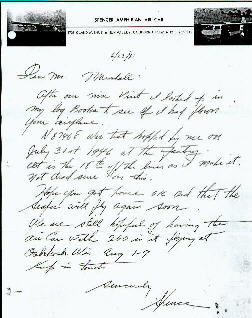 SPENCER AMPHIBIAN AIR CAR
Dear Mr.
After our nice visit I looked up in
my log Books to see if I had flown
your airplane.
N8746E was test hopped by me on
July 31st 1946 at the factory
it is the 18th off the line as I make it.
Not dead sure on this.
Hope you got home OK and that the
Seabee will fly again soon.
We are still hopeful of having the
Air Car with 260 in it flying at
Oshkosh Wis. Aug 1-7
Keep in touch
Sincerely
Spence